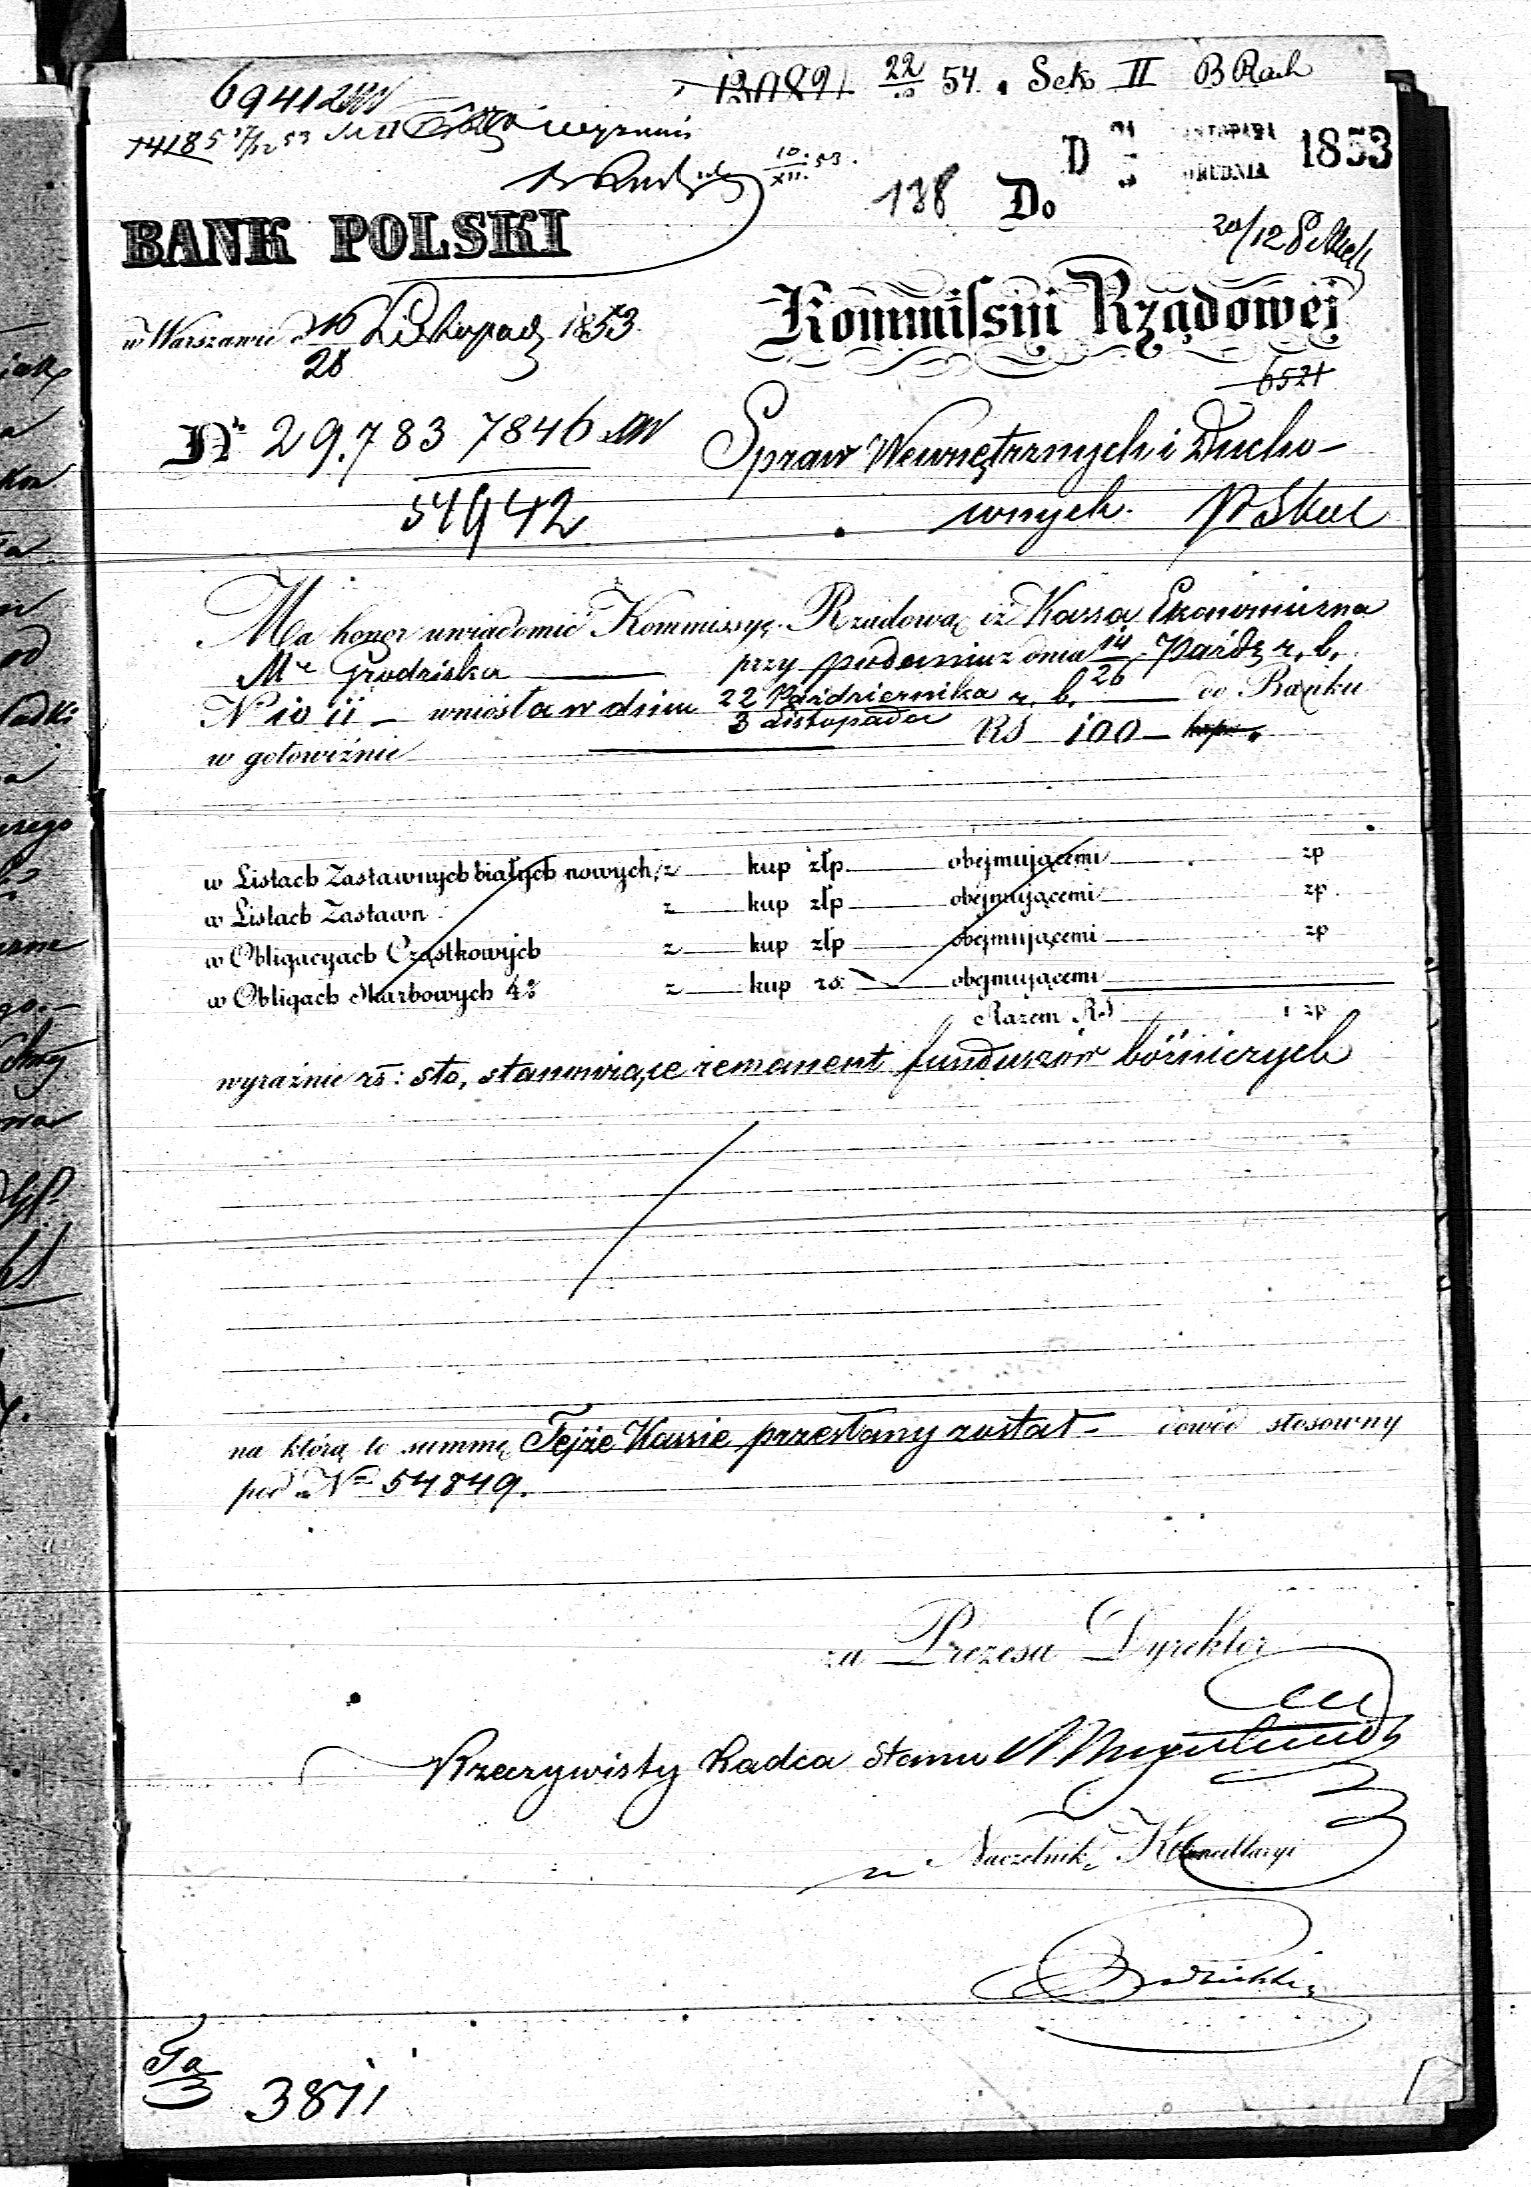 69412
13082 22 54. Sek II B Rach
14185 17/12 53
10/XII 53.
D LISTOPADA GRUDNIA 1853
138 Do
20/12
BANK POLSKI
w Warszawie d 16/28 Listopad 1853
Kommissyi Rządowej
6521
Nr 29.783 7846
54942
Spraw Wewnętrznych i Ducho-
wnych.
Ma honor uwiadomić Kommissyę Rządową iż Kassa Ekonomiczna
Mta Grodziska przy podaniu z dnia 14/26 Paźdz r. b.
N 1011 wniosła w dniu 22 Października/3 Listopada r. b. do Banku
w gotowiźnie RS 100 kop.
w Listach Zastawnych białych nowych, z kup złp obejmującemi zp
w Listach Zastawn z kup złp obejmującemi zp
w Obligacyach Cząstkowych z kup złp obejmującemi zp
w Obligach Skarbowych 4% z kup rs. obejmującemi
Razem RS i zp
wyraźnie rs: sto, stanowiące remanent funduszów bóżniczych
na którą to summę Tejże Kassie przesłany został dowód stosowny
pod Nr 54849.
za Prezesa Dyrektor
Rzeczywisty Radca Stanu
za Naczelnik Kancellaryi
3871